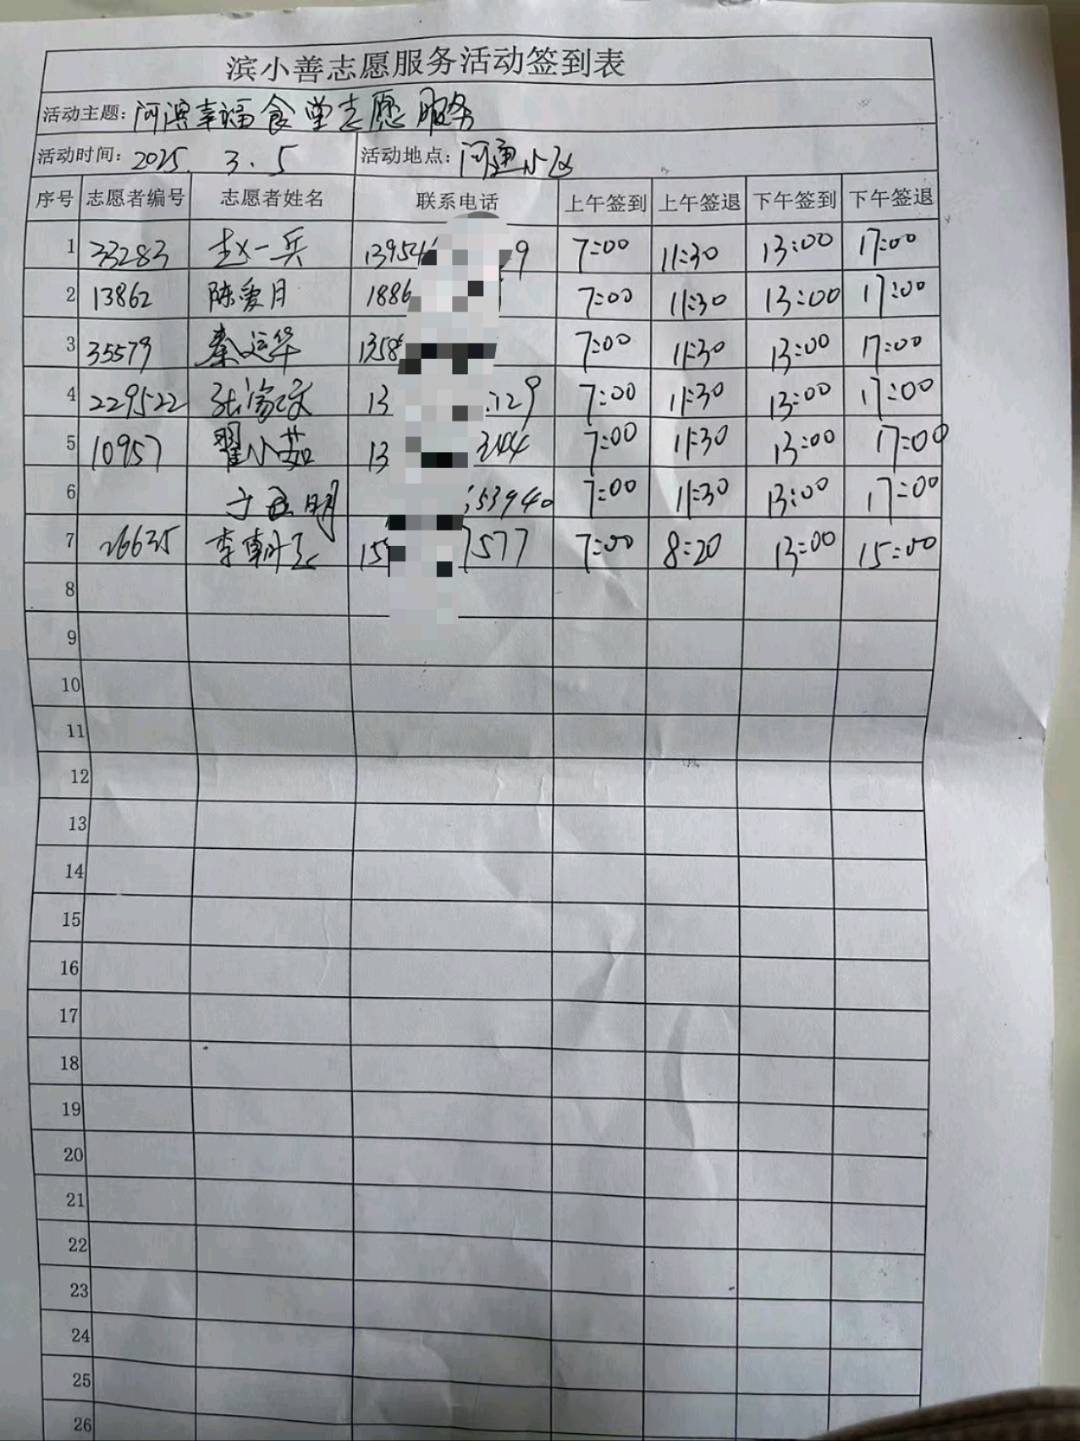 滨小善志愿服务活动签到表
活动主题: 河滨幸福食堂志愿服务
活动时间: 2025. 3. 5 活动地点: 河通小区
序号 志愿者编号 志愿者姓名 联系电话 上午签到 上午签退 下午签到 下午签退
1 33283 赵一兵 13954 9 7:00 11:30 13:00 17:00
2 13862 陈爱月 1886 7:00 11:30 13:00 17:00
3 35579 秦运华 1358 7:00 11:30 13:00 17:00
4 229522 张 13 129 7:00 11:30 13:00 17:00
5 10957 翟小茹 13 3144 7:00 11:30 13:00 17:00
6 明 53940 7:00 11:30 13:00 17:00
7 26635 李朝 15 7577 7:00 8:20 13:00 15:00
8
9
10
11
12
13
14
15
16
17
18
19
20
21
22
23
24
25
26